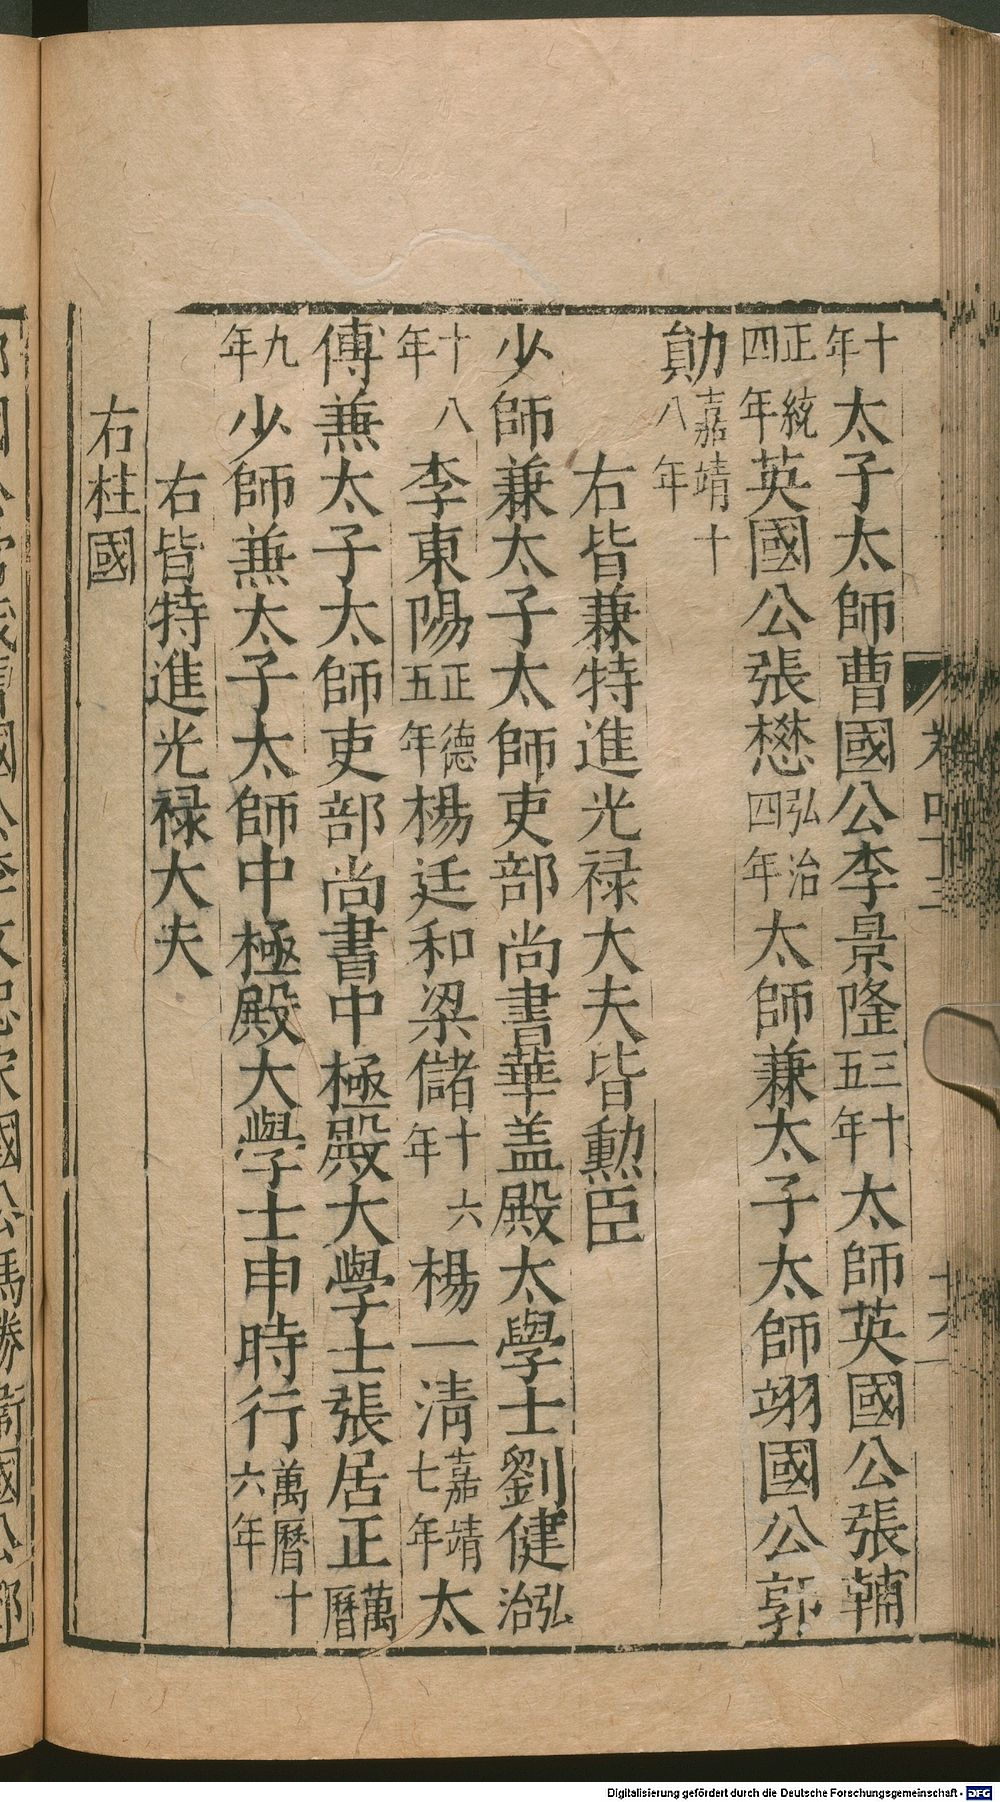 十年太子太師曹國公李景隆三十五年太師英國公張輔
正統四年英國公張懋弘治四年太師兼太子太師翊國公郭
勛嘉靖十八年
右皆兼特進光禄大夫皆勲臣
少師兼太子太師吏部尚書華盖殿太學士劉健弘治
十八年李東陽正德五年楊廷和梁儲十六年楊一清嘉靖七年太
傅兼太子太師吏部尚書中極殿大學士張居正萬曆
九年少師兼太子太師中極殿大學士申時行萬曆十六年
右皆特進光禄大夫
右柱國
Digitalisierung gefördert durch die Deutsche Forschungsgemeinschaft - DFG